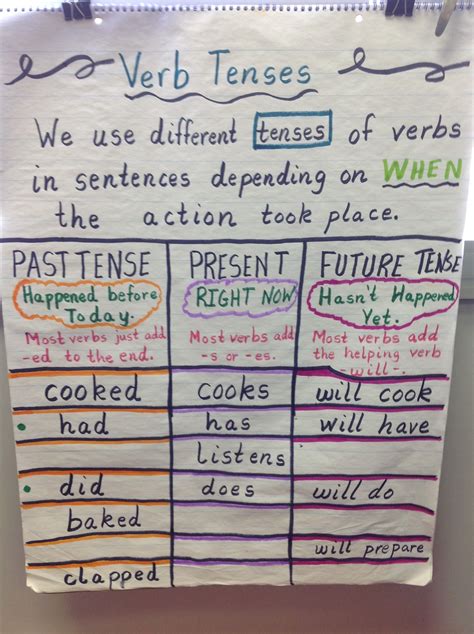 Verb Tenses
We use different tenses of verbs
in sentences depending on WHEN
the action took place.
PAST TENSE
Happened before
Today.
Most verbs just add
-ed to the end.
PRESENT
RIGHT NOW
Most verbs add
-s or -es.
FUTURE TENSE
Hasn't Happened
Yet.
Most verbs add
the helping verb
-will-.
cooked cooks will cook
had has will have
listens
did does will do
baked
will prepare
clapped